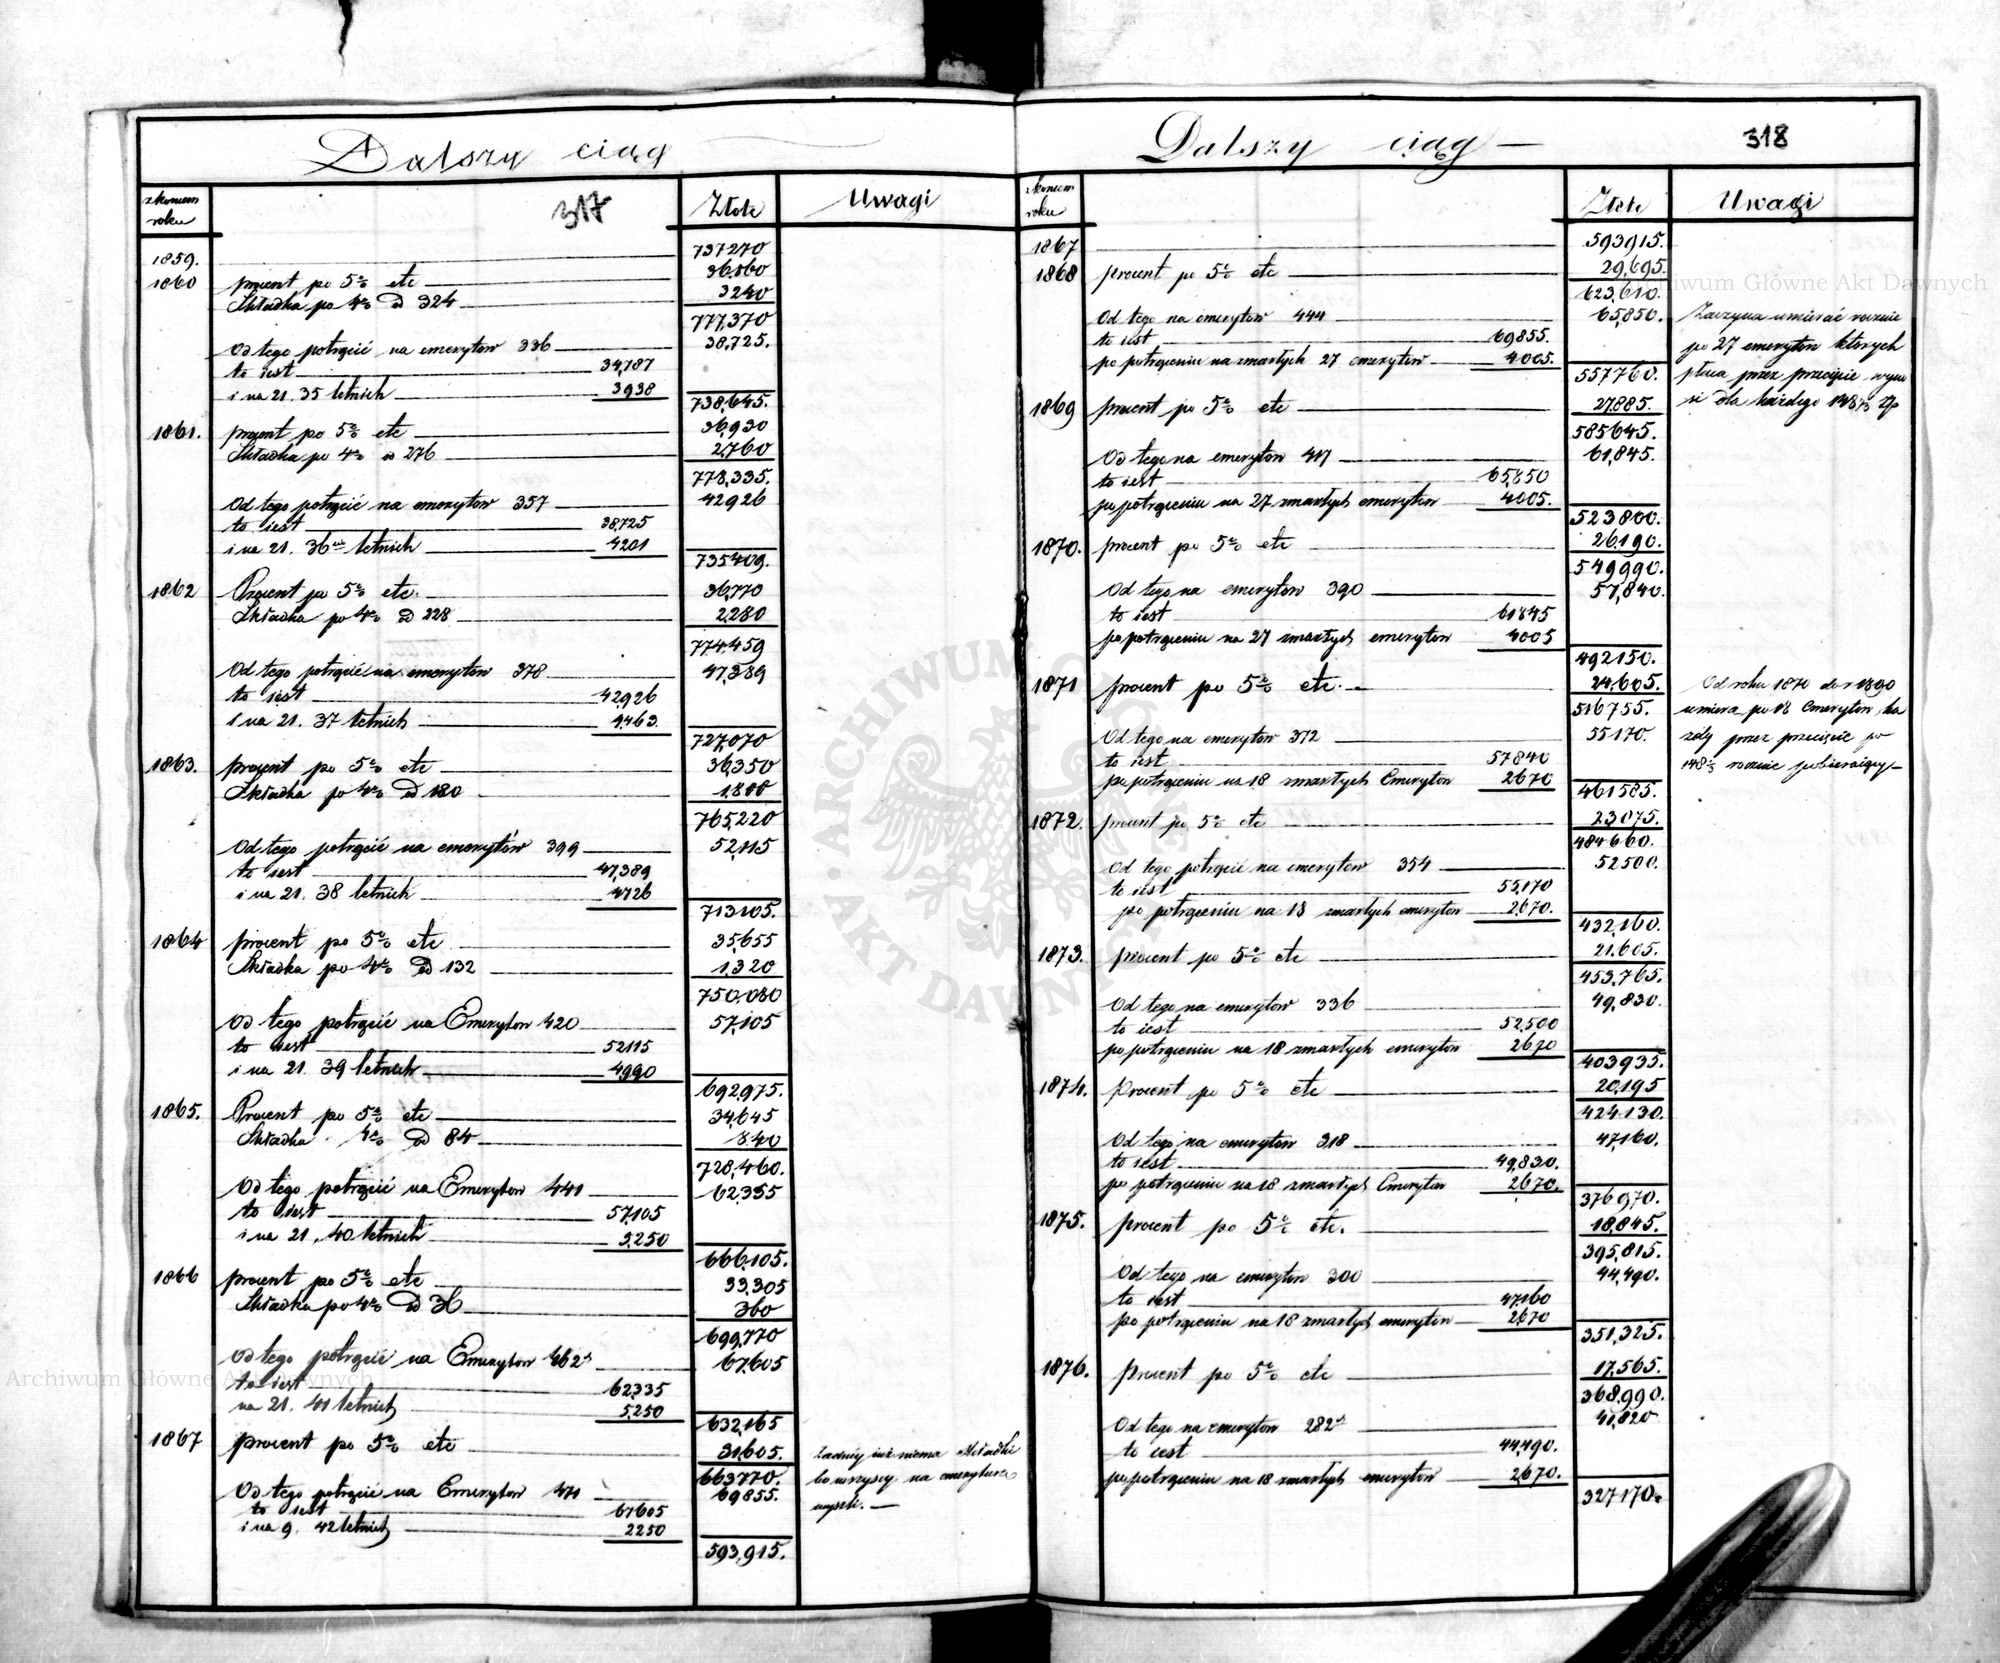 Dalszy ciąg
z końcem roku
317
Złote
Uwagi
1859. 737270
1860 procent po 5% etc 36,860
Składka po 4% od 324 3240
777,370
Od tego potrącić na emerytów 336 38,725.
to iest 34,787
i na 21. 35 letnich 3938
738,645.
1861. procent po 5% etc 36,930
Składka po 4% od 276 2,760
778,335.
Od tego potrącić na emerytów 357 42926
to iest 38,725
i na 21. 36 letnich 4201
735409.
1862 Procent po 5% etc. 36,770
Składka po 4% od 228 2,280
774,459
Od tego potrącić na emerytów 378 47,389
to iest 42926
i na 21. 37 letnich 4,463.
727,070
1863. procent po 5% etc 36,350
Składka po 4% od 180 1,800
765,220
Od tego potrącić na emerytów 399 52,115
to iest 47,389
i na 21. 38 letnich 4726
713105.
1864 procent po 5% etc 35,655
Składka po 4% od 132 1,320
750,080
Od tego potrącić na Emerytów 420 57,105
to iest 52115
i na 21. 39 letnich 4,990
692,975.
1865. Procent po 5% etc 34,645
Składka 4% od 84 840
728,460.
Od tego potrącić na Emerytów 441 62,355
to iest 57,105
i na 21. 40 letnich 5,250
666,105.
1866 procent po 5% etc 33,305
Składka po 4% od 36 360
699,770
Od tego potrącić na Emerytów 462 67,605
to iest 62335
na 21. 41 letnich 5,250
632,165
1867 procent po 5% etc 31,605.
663770.
Od tego potrącić na Emerytów 471 69855.
to iest 67605
i na 9. 42 letnich 2250
593,915.
Żadnéy już niema składki
bo wszyscy na emeryturę
wyszli. —
Dalszy ciąg —
318
z końcem roku
Złote
Uwagi
1867 593915.
1868 procent po 5% etc 29,695.
623,610.
Od tego na emerytów 444 65,850.
to iest 69855.
po potrąceniu na zmarłych 27 emerytów 4005.
557760.
Zaczyna umierać rocznie
po 27 emerytów których
płaca przez przecięcie wyno
si dla każdego 148⅓ Zp
1869 procent po 5% etc 27,885.
585645.
Od tego na emerytów 417 61,845.
to iest 65,850
po potrąceniu na 27 zmarłych emerytów 4005.
523800.
1870. procent po 5% etc 26,190.
549,990.
Od tego na emerytów 390 57,840.
to iest 61845
po potrąceniu na 27 zmarłych emerytów 4005
492150.
1871 procent po 5% etc. 24,605.
516755.
Od tego na emerytów 372 55170.
to iest 57840
po potrąceniu na 18 zmarłych Emerytów 2670
461585.
Od roku 1870 do r 1890
umiera po 18 Emerytów, ka
żdy przez przecięcie po
148⅓ rocznie pobieraiący —
1872. procent po 5% etc 23075.
484660.
Od tego potrącić na emerytów 354 52500.
to iest 55,170
po potrąceniu na 18 zmarłych emerytów 2,670.
432,160.
1873. procent po 5% etc 21,605.
453,765.
Od tego na emerytów 336 49,830.
to iest 52,500
po potrąceniu na 18 zmarłych emerytów 2670
403935.
1874. Procent po 5% etc 20,195
424130.
Od tego na emerytów 318 47,160.
to iest 49,830.
po potrąceniu na 18 zmarłych Emerytów 2,670.
376970.
1875. procent po 5% etc. 18,845.
395,815.
Od tego na emerytów 300 44,490.
to iest 47,160
po potrąceniu na 18 zmarłych emerytów 2,670
351,325.
1876. procent po 5% etc 17,565.
368,990.
Od tego na emerytów 282 41,820
to iest 44,490.
po potrąceniu na 18 zmarłych emerytów 2,670.
327170.
Archiwum Główne Akt Dawnych
Archiwum Główne Akt Dawnych
ARCHIWUM GŁÓWNE
AKT DAWNYCH